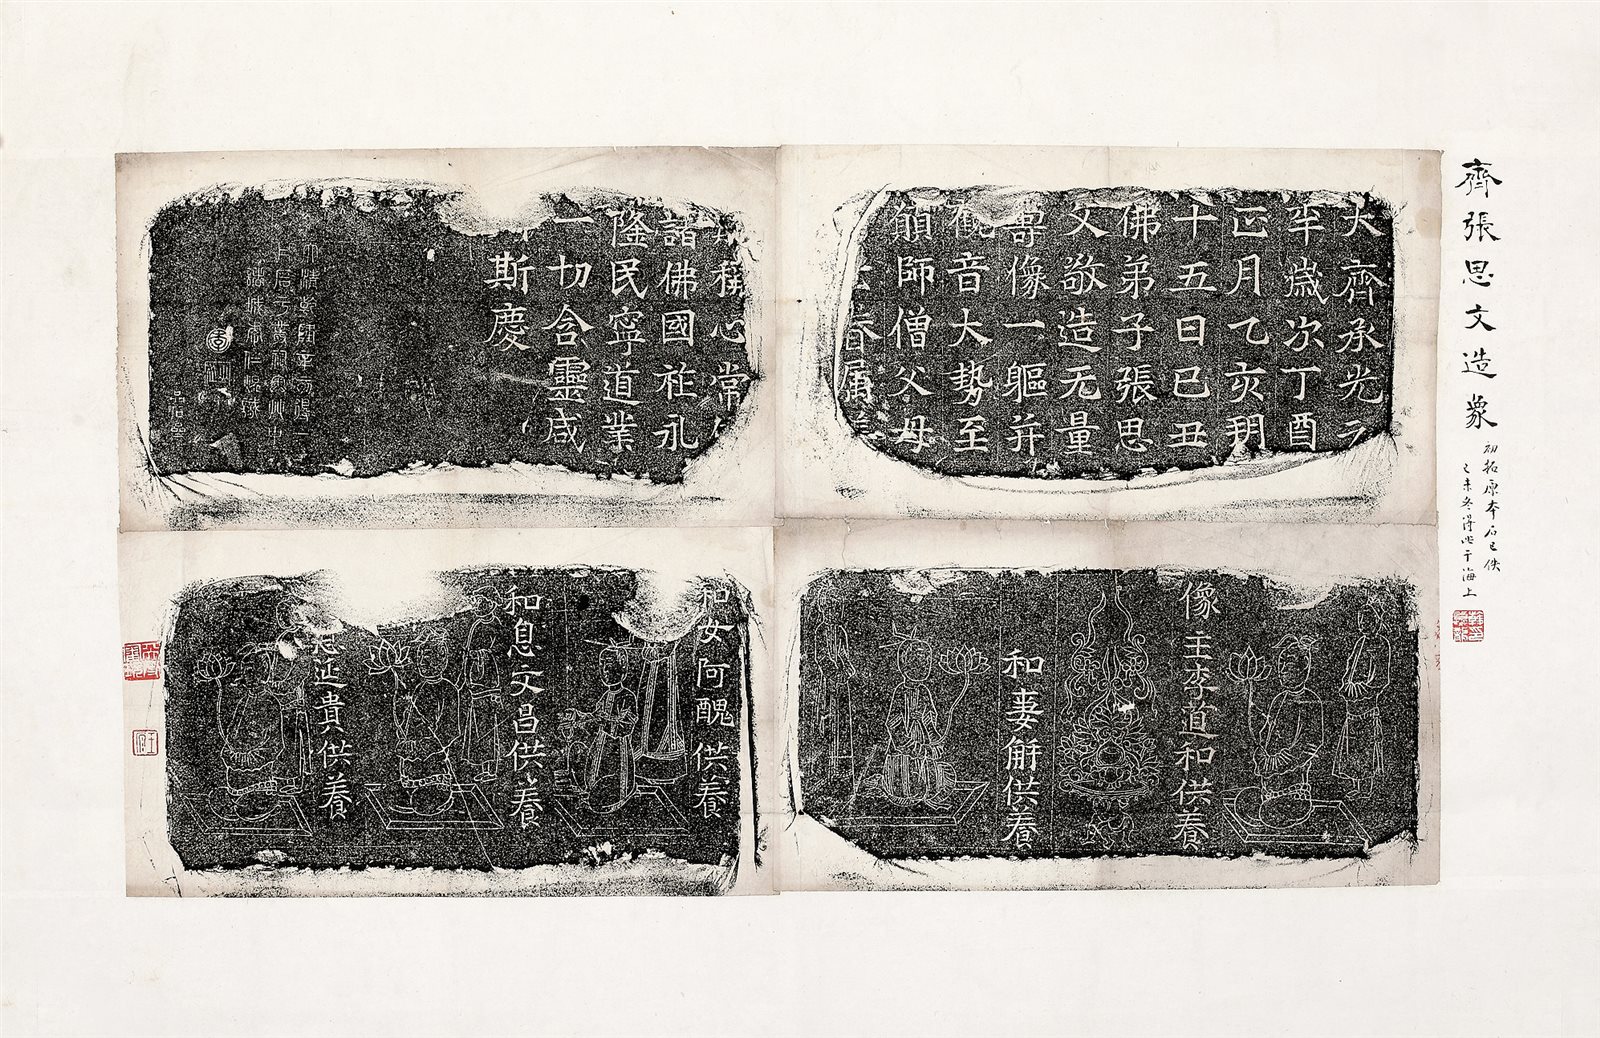 齊張思文造象
初拓原本石已佚
乙未冬得此于海上
大齊承光元
年歲次丁酉
正月乙亥朔
十五日己丑
佛弟子張思
文敬造无量
壽像一軀并
觀音大勢至
願師僧父母
眷属
穪心常
諸佛國祚永
隆民寧道業
一切含靈咸
斯慶
像主李道和供養
和妻解供養
和女阿醜供養
和息文昌供養
息延貴供養